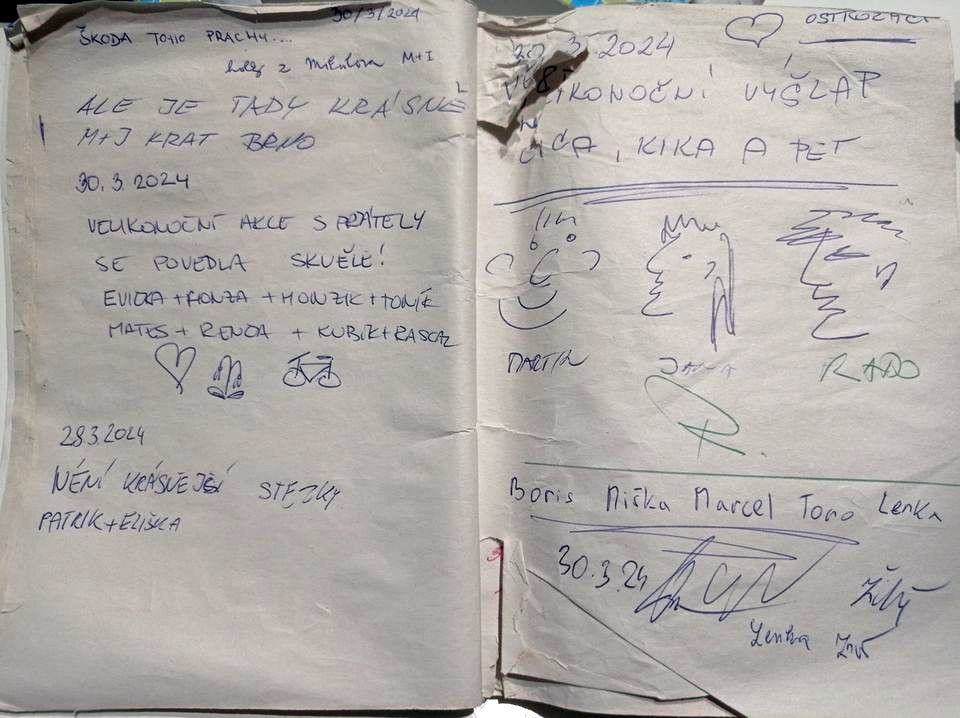 30/3/2024
ŠKODA TOHO PRACHU....
holky z Mikulova M+I
ALE JE TADY KRÁSNĚ
M+J KRAT BRNO
30.3.2024
VELIKONOČNÍ AKCE S PŘÁTELY
SE POVEDLA SKVĚLE!
EVIČKA+HONZA+HONZÍK+TONÍK
MATES+RENDA+KUBÍK+RASCAL
28.3.2024
NENÍ KRÁSNEJŠÍ STEJKY
PATRIK+ELIŠKA
OSTROŽÁCI
3. 2024
VELIKONOČNÍ VÝŠLAP
KIKA A PET
MARTIN JANA RADO
Boris Miška Marcel Tono Lenka
30.3.24
Lenka